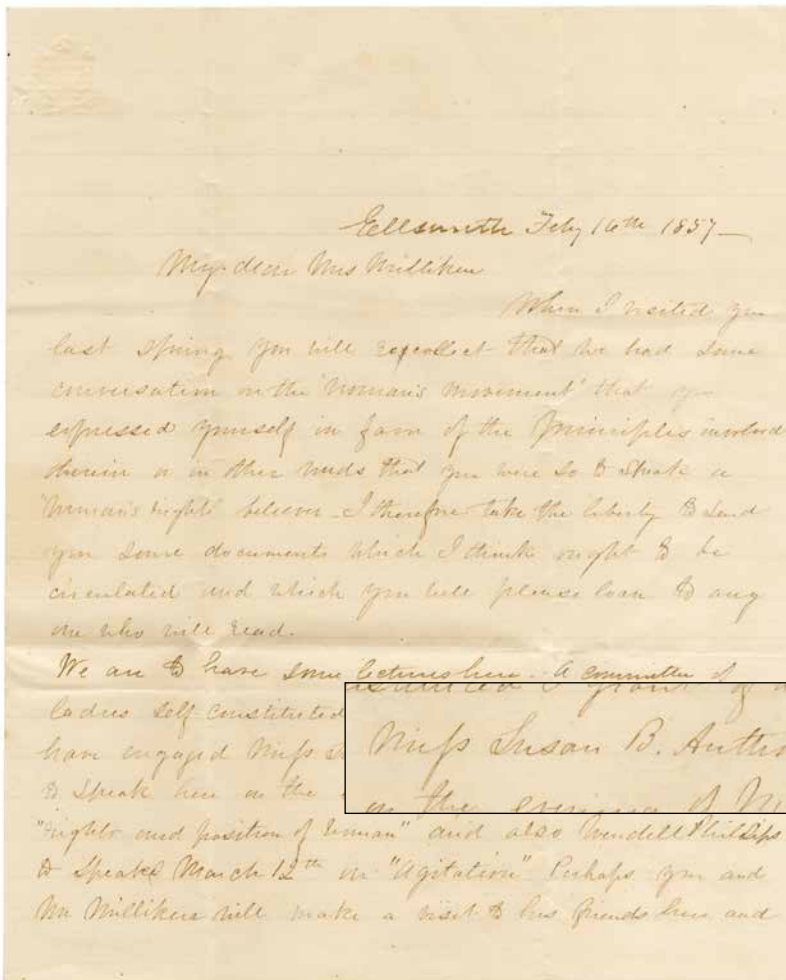 Ellsworth Feby 16th 1857
My dear Mrs Milliken
When I visited you
last spring you will recollect that we had some
conversation on the "Woman's Movement" that you
expressed yourself in favor of the principles involved
therein or in other words that you were so to speak a
"Woman's rights" believer I therefore take the liberty to send
you some documents which I think ought to be
circulated and which you will please loan to any
one who will read.
We are to have some lectures here. A committee of
ladies self-constituted
have engaged Miss
to speak here on the
Miss Susan B. Antho
on the evening of
"rights and position of Woman" and also Wendell Phillips
to speak March 12th on "Agitation" Perhaps you and
Mr Milliken will make a visit to his friends here and